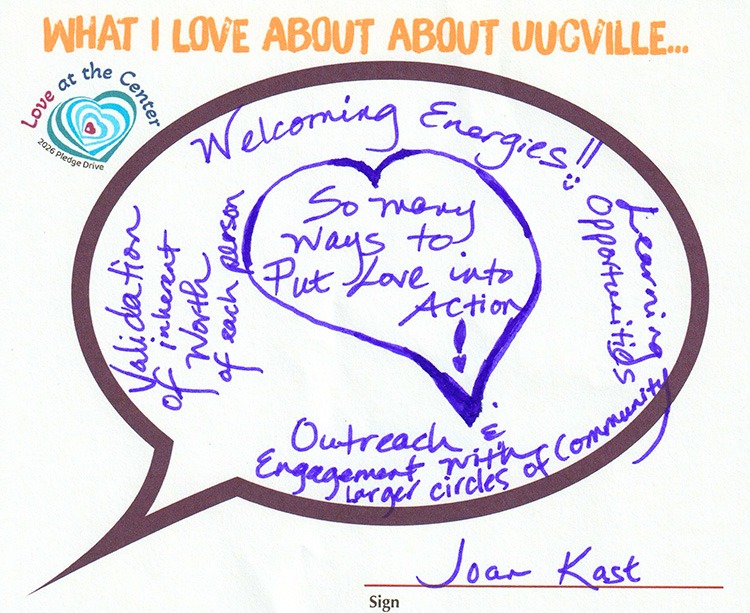 WHAT I LOVE ABOUT ABOUT UUCVILLE...
Love at the Center
2026 Pledge Drive
Welcoming Energies!!
So many
ways to
Put Love into
Action
!
Validation
of inherent
Worth
of each person
Learning
Opportunities
Outreach &
Engagement with
larger circles of Community
Joan Kast
Sign